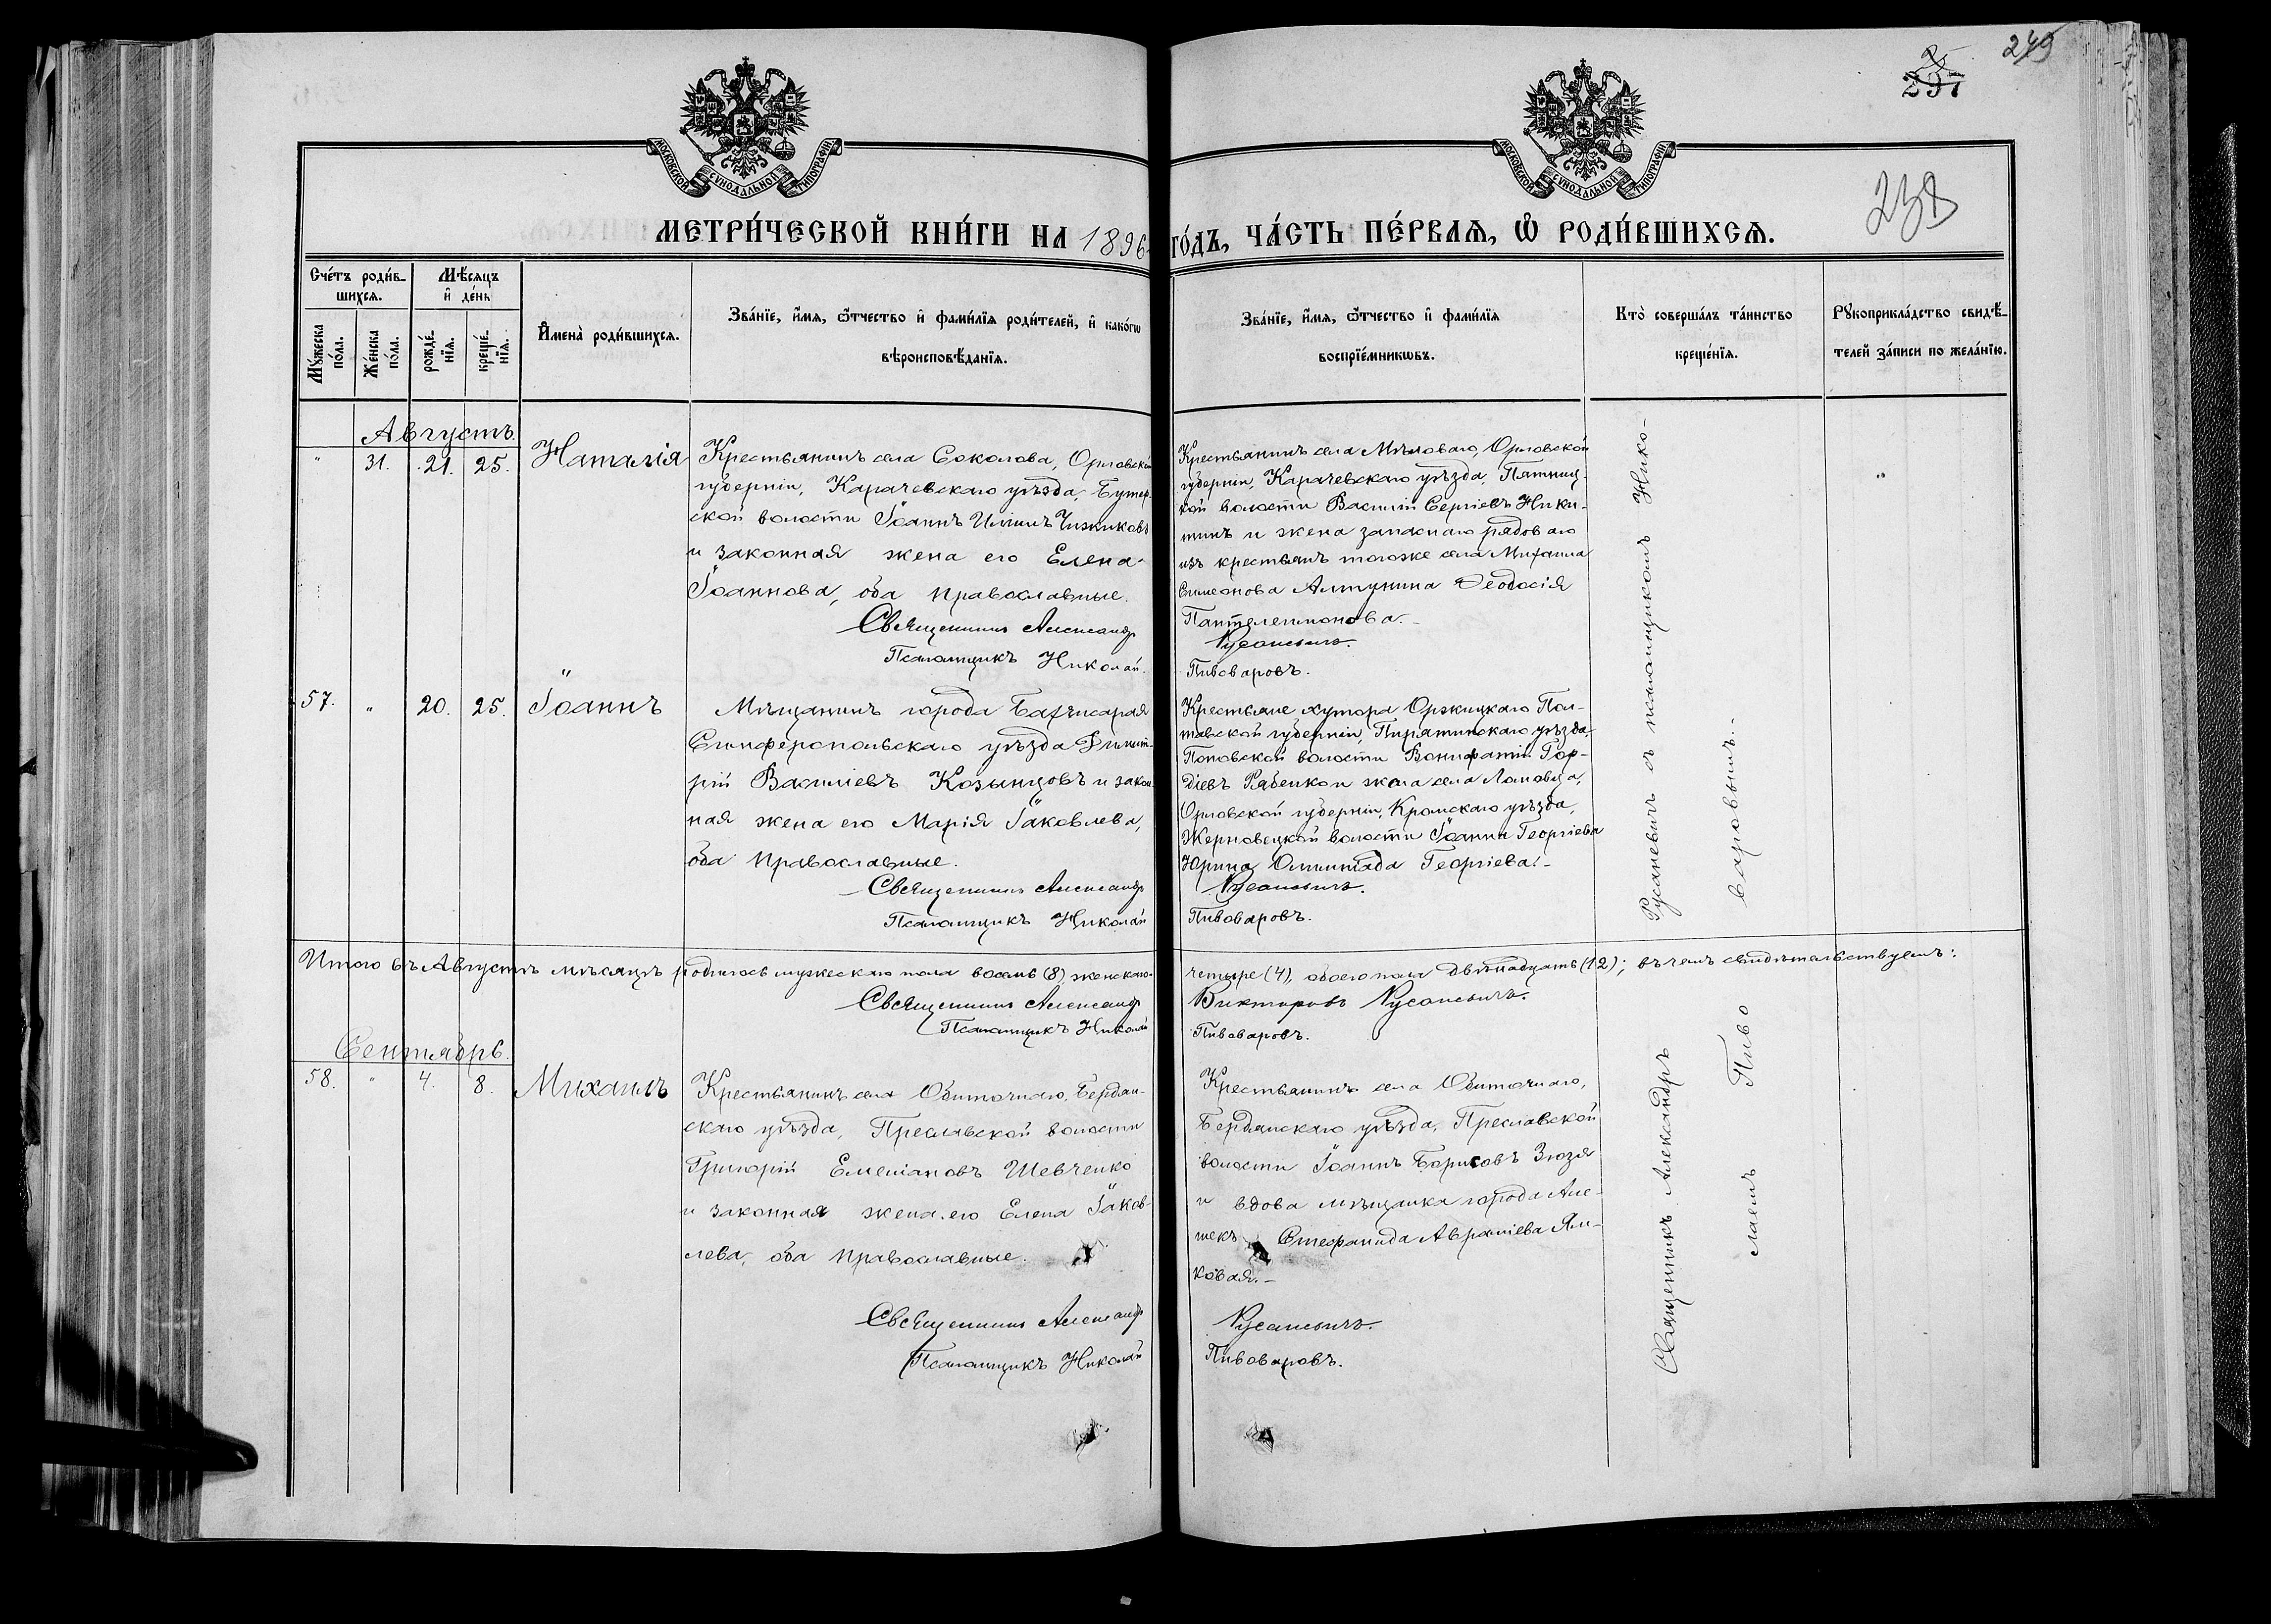 249
25
237
238
МОСКОВСКОЙ СѴНОДАЛЬНОЙ ТИПОГРАФІИ
МОСКОВСКОЙ СѴНОДАЛЬНОЙ ТИПОГРАФІИ
МЕТРИ́ЧЕСКОЙ КНИ́ГИ НА 1896 ГО́ДЪ, ЧА́СТЬ ПЕ́РВАѦ, Ѽ РОДИ́ВШИХСѦ.
Сче́тъ роди́в-
шихсѧ.
Мꙋ́жеска по́ла.
Же́нска по́ла.
Мѣ́сѧцъ
и҆ де́нь
рожде́-нїѧ.
креще́-нїѧ.
И҆мена̀ роди́вшихсѧ.
Зва́нїе, и҆́мѧ, ѻ҆́тчество и҆ фами́лїѧ роди́телей, и҆ како́гѡ
вѣроисповѣ́данїѧ.
Зва́нїе, и҆́мѧ, ѻ҆́тчество и҆ фами́лїѧ
воспрїе́мникѡвъ.
Кто̀ соверша́лъ та́инство
креще́нїѧ.
Рꙋкоприкла́дство свидѣ́-
телей за́писи по жела́нїю.
Августъ.
" 31. 21. 25. Наталія
Крестьянинъ села Соколова, Орловской
губерніи, Карачевскаго уѣзда, Бутер-
ской волости Іоаннъ Иліинъ Чижиковъ
и законная жена его Елена
Іоаннова, оба православные.
Священникъ Александръ
Псаломщикъ Николай
Крестьянинъ села Мѣловаго, Орловской
губерніи, Карачевскаго уѣзда, Пятниц-
кой волости Василій Сергіевъ Ники-
тинъ и жена запаснаго рядоваго
изъ крестьянъ тогоже села Михаила
Симеонова Алтунина Ѳеодосія
Пантелеимонова.-
Русаневичъ.
Пивоваровъ.
"
57. " 20. 25. Іоаннъ
Мѣщанинъ города Бахчисарая
Симферопольскаго уѣзда Димит-
рій Василіевъ Козынцовъ и закон-
ная жена его Марія Іаковлева,
оба православные.
Священникъ Александръ
Псаломщикъ Николай
Крестьяне хутора Оржицкаго Пол-
тавской губерніи, Пирятинскаго уѣзда,
Поповской волости Вонифатій Гор-
діевъ Рябенко и жена села Ломовца,
Орловской губерніи, Кромскаго уѣзда,
Жерновецкой волости Іоанна Георгіева
Юрина Олимпіада Георгіева.-
Русаневичъ.
Пивоваровъ.
Итого въ Августѣ мѣсяцѣ родилось мужескаго пола восемь (8), женскаго четыре (4), обоего пола двѣнадцать (12); въ чемъ свидѣтельствуемъ:
Священникъ Александръ Викторовъ Русаневичъ.
Псаломщикъ Николай Пивоваровъ.
Сентябрь.
58. " 4. 8. Михаилъ
Крестьянинъ села Обиточнаго, Бердян-
скаго уѣзда, Преславской волости
Григорій Емеліановъ Шевченко
и законная жена его Елена Іаков-
лева, оба православные.
Священникъ Александръ
Псаломщикъ Николай
Крестьянинъ села Обиточнаго,
Бердянскаго уѣзда, Преславской
волости Іоаннъ Борисовъ Зюзя
и вдова мѣщанка города Але-
шекъ Стефанида Авраміева Ям-
ковая.-
Русаневичъ.
Пивоваровъ.
Священникъ Александръ Русаневичъ съ псаломщикомъ Нико-
лаемъ Пивоваровымъ.-